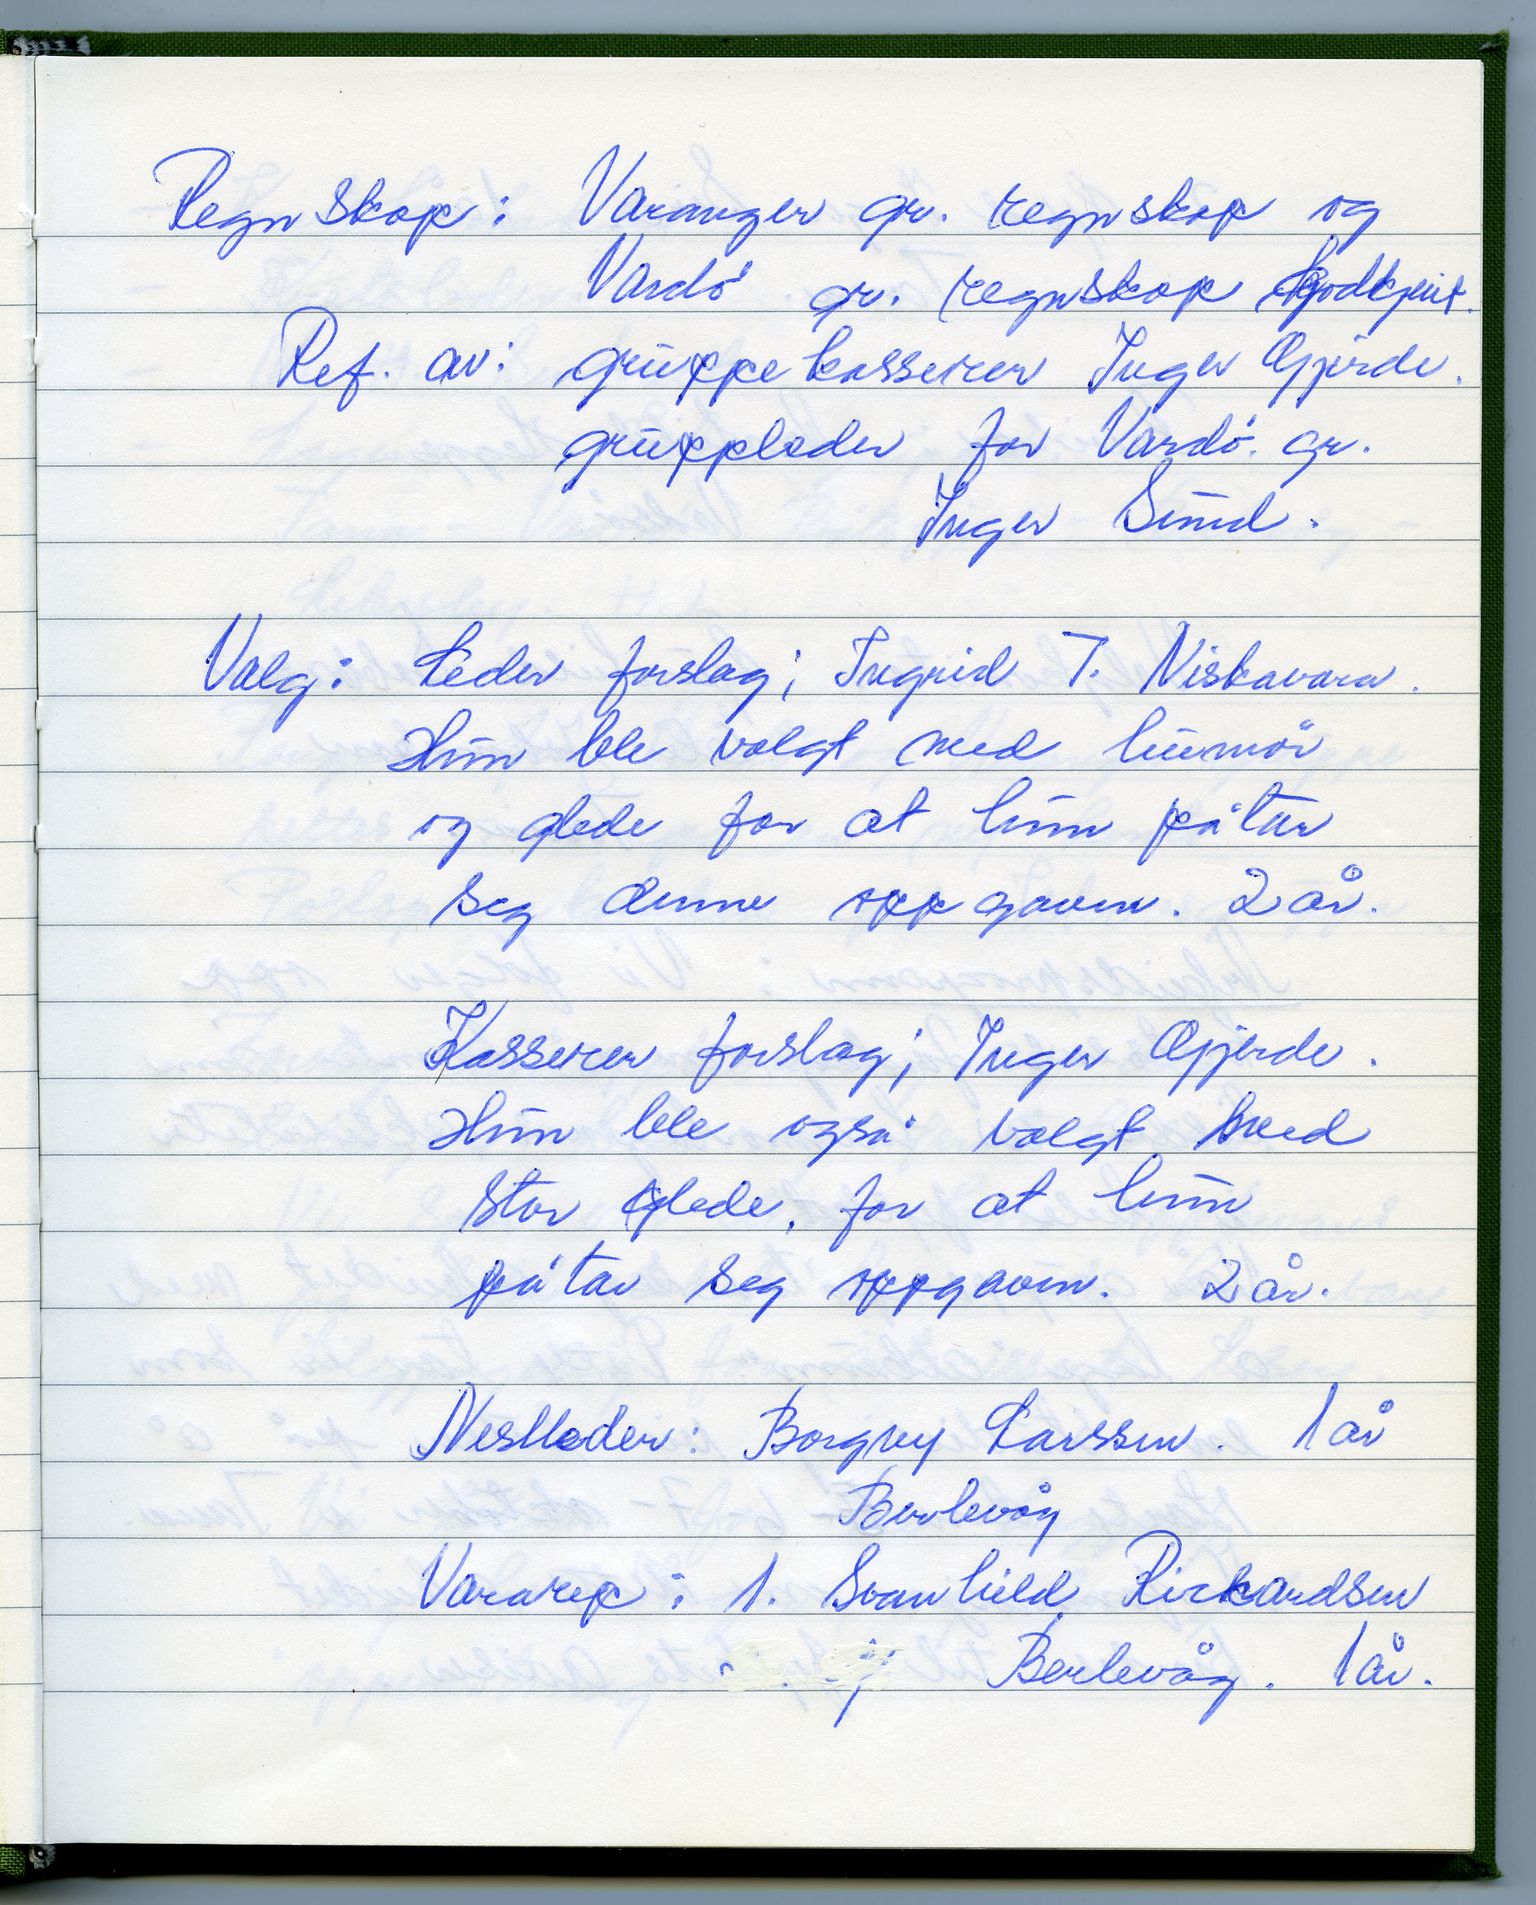 Regnskap: Varanger gr. regnskap og
Vardø gr. regnskap godkjent.
Ref. av: gruppekasserer Inger Gjerde.
gruppleder for Vardø. gr.
Inger Sund.
Valg: Leder forslag; Ingrid T. Niskavara.
Hun ble valgt med humør
og glede for at hun påtar
seg denne oppgaven. 2 år.
Kasserer forslag; Inger Gjerde.
Hun ble også valgt med
stor glede, for at hun
påtar seg oppgaven. 2 år.
Nestleder: Borgny Larssen. 1 år
Berlevåg
Vararep: 1. Svanhild Rickardsen
Berlevåg. 1 år.